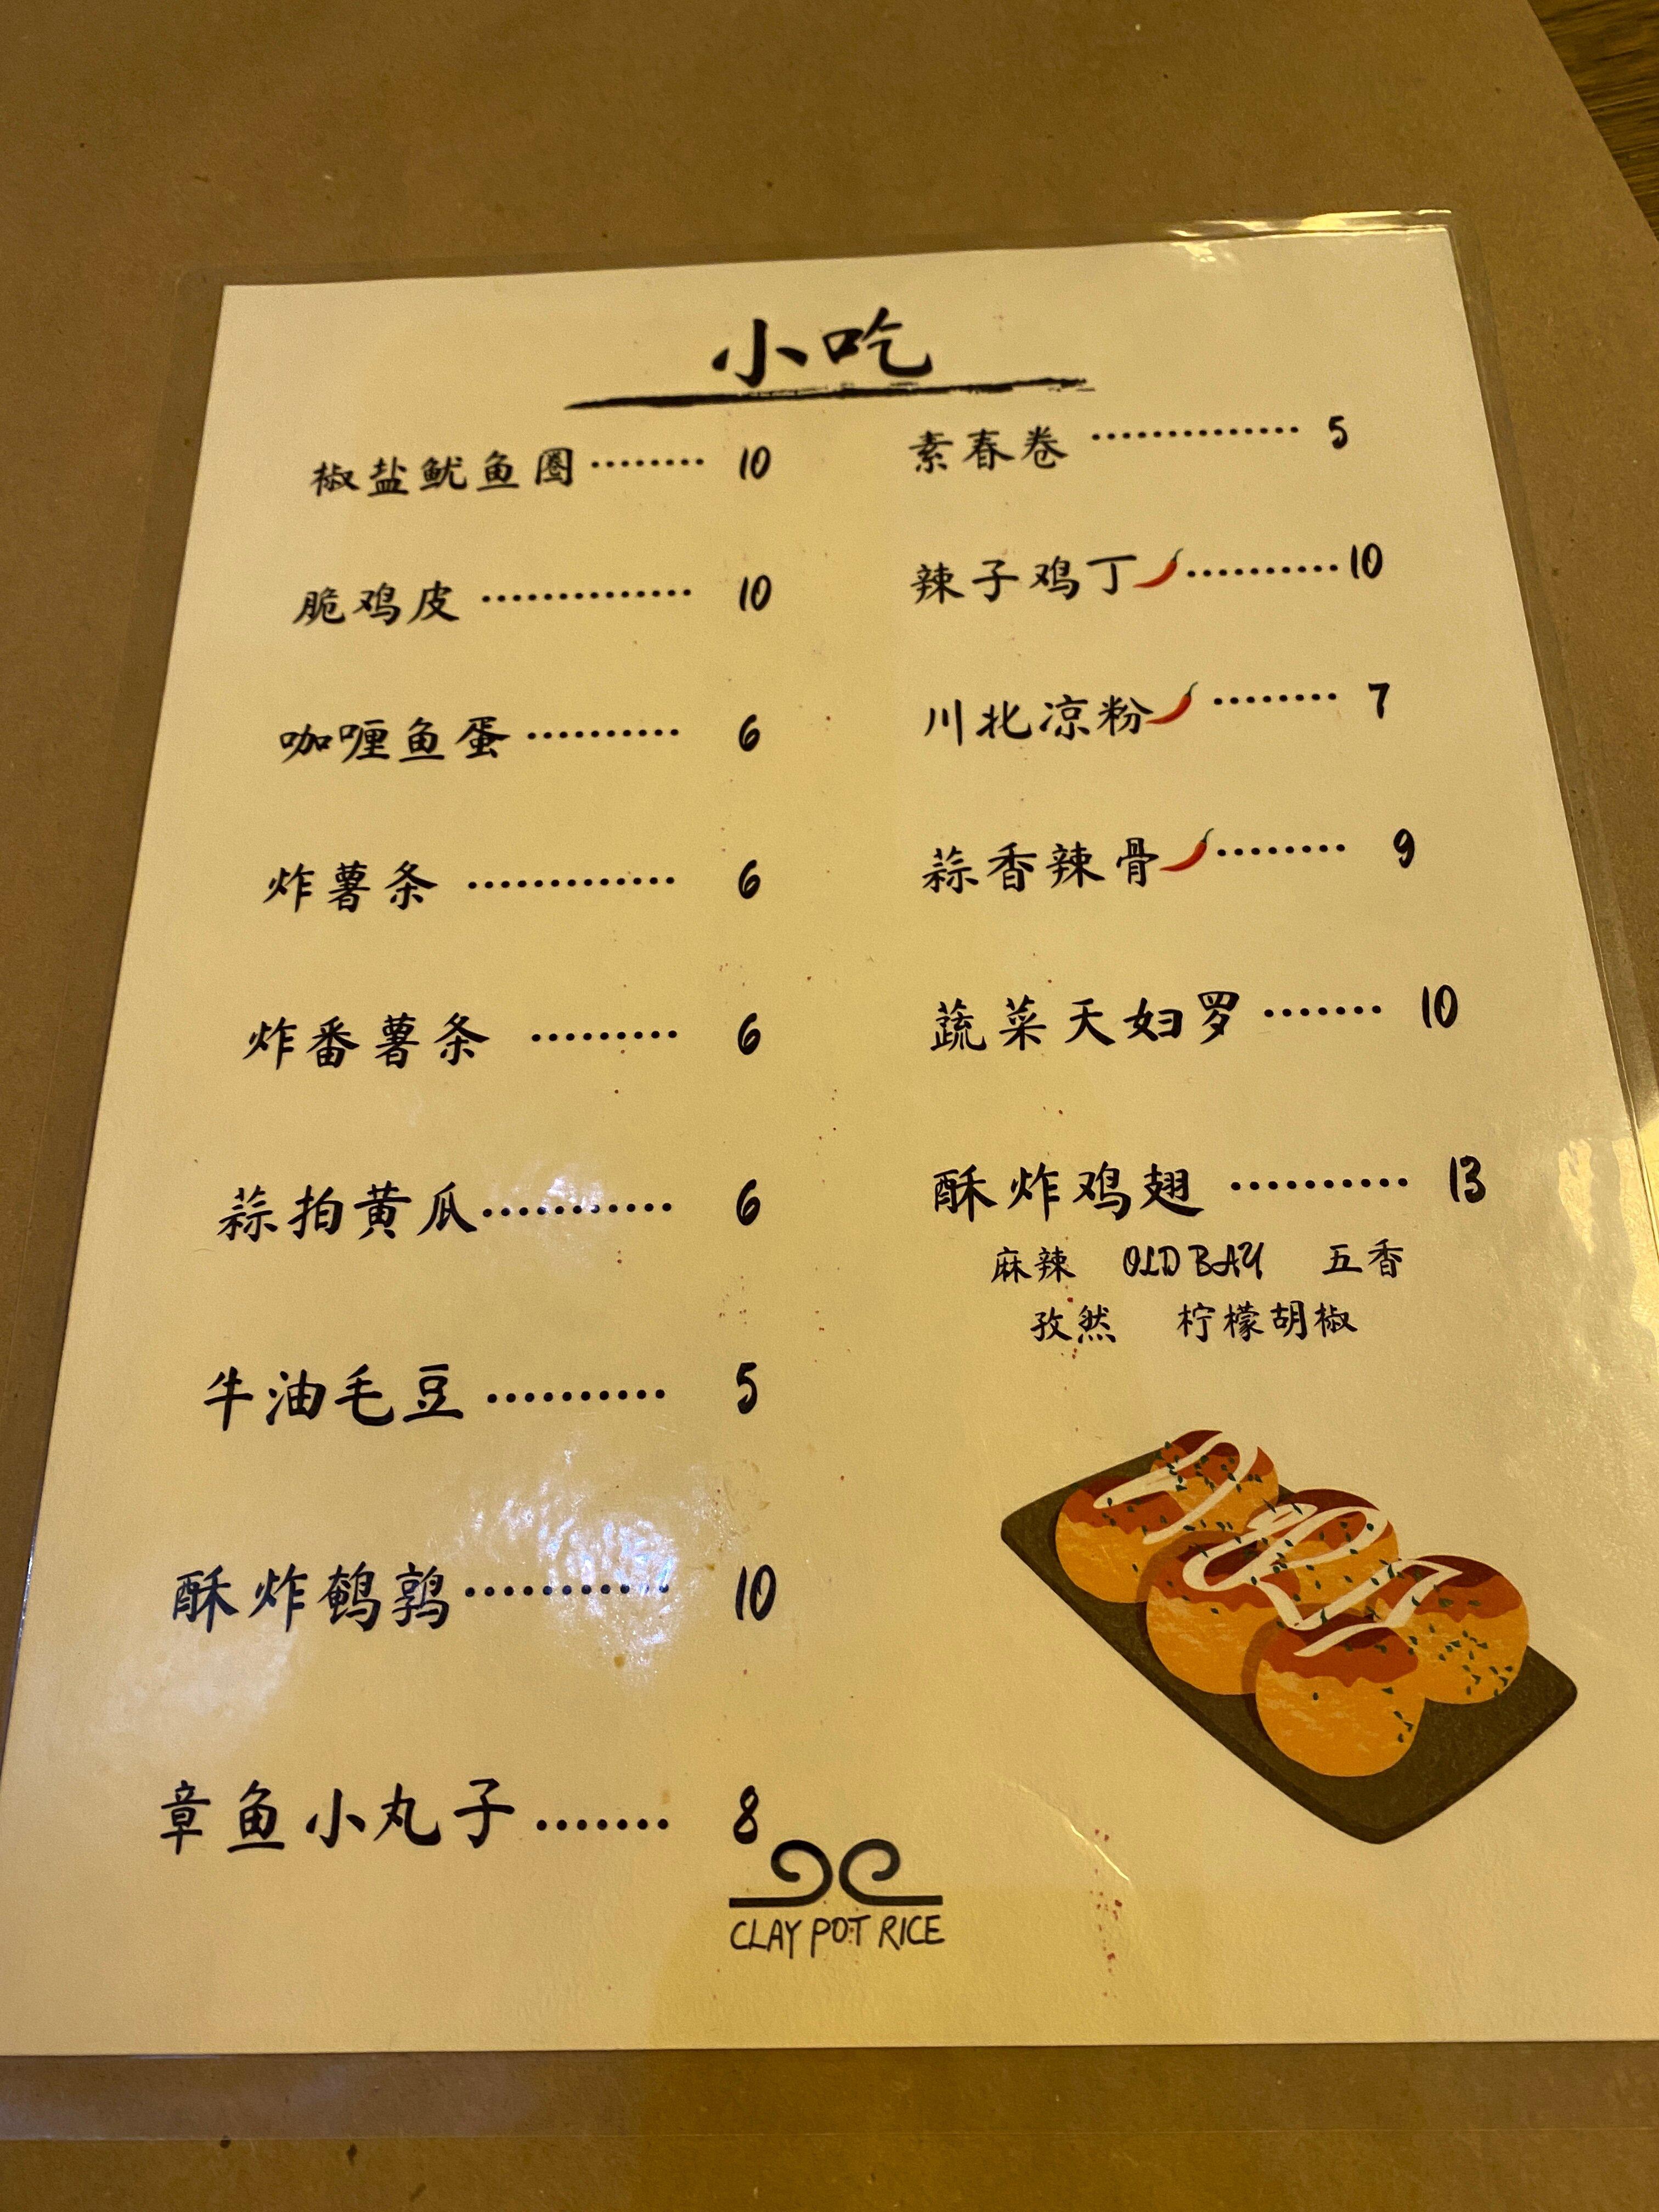 小吃
椒盐鱿鱼圈 ········ 10
脆鸡皮 ·············· 10
咖喱鱼蛋 ·········· 6
炸薯条 ············· 6
炸番薯条 ········· 6
蒜拍黄瓜 ··········· 6
牛油毛豆 ·········· 5
酥炸鹌鹑 ··········· 10
章鱼小丸子 ······· 8
素春卷 ·············· 5
辣子鸡丁 ·········· 10
川北凉粉 ········ 7
蒜香辣骨 ········ 9
蔬菜天妇罗 ······· 10
酥炸鸡翅 ·········· 13
麻辣 OLD BAY 五香
孜然 柠檬胡椒
CLAY POT RICE